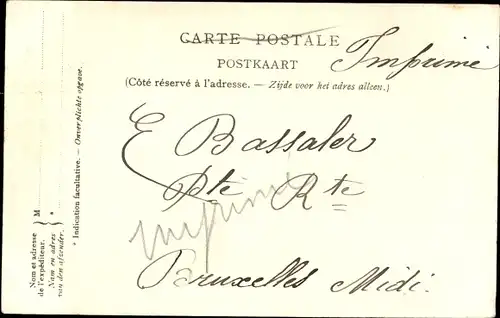 CARTE POSTALE
Imprimé
POSTKAART
(Côté réservé à l'adresse. — Zijde voor het adres alleen.)
E Bassaler
Pte Rte
Imprimé
Bruxelles Midi.
* Indication facultative. — Onverplichte opgave.
M
*
Nom et adresse
de l'expéditeur.
Naam en adres
van den afzender.